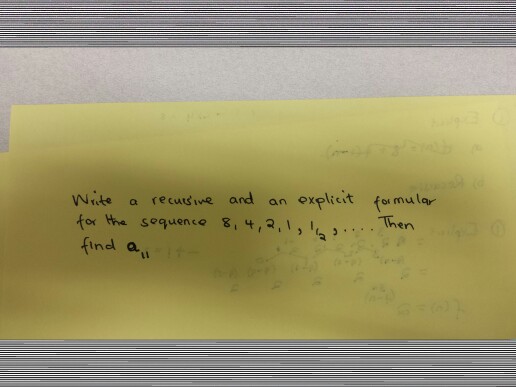 Write a recursive and an explicit formular
for the sequence 8, 4, 2, 1, 1/2, .... Then
find a₁₁